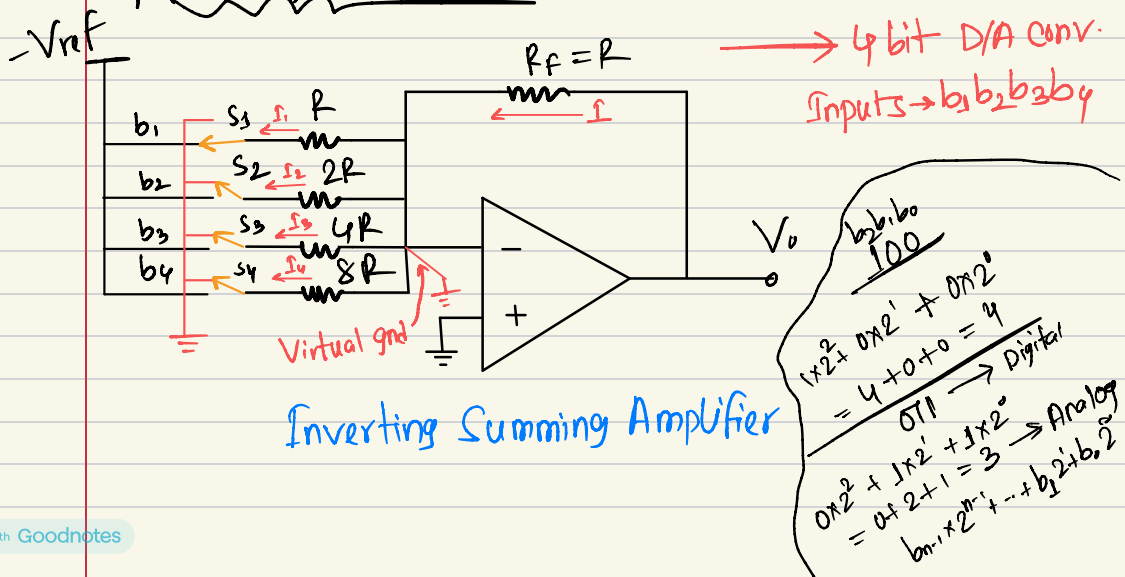 -Vref
RF = R
→ 4 bit D/A Conv.
I
Inputs → b1b2b3b4
b1 S1 I1 R
b2 S2 I2 2R
b3 S3 I3 4R
b4 S4 I4 8R
-
+
Vo
Virtual gnd
Inverting Summing Amplifier
b2b1b0
100
1×2² + 0×2¹ + 0×2⁰
= 4+0+0 = 4
011 → Digital
0×2² + 1×2¹ + 1×2⁰
= 0+2+1 = 3 → Analog
bn-1×2ⁿ⁻¹+...+b1 2¹+b0 2⁰
th Goodnotes